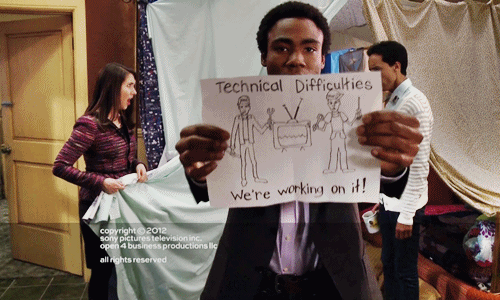 Technical Difficulties
We're working on it!
copyright © 2012
sony pictures television inc.
open 4 business productions llc
all rights reserved